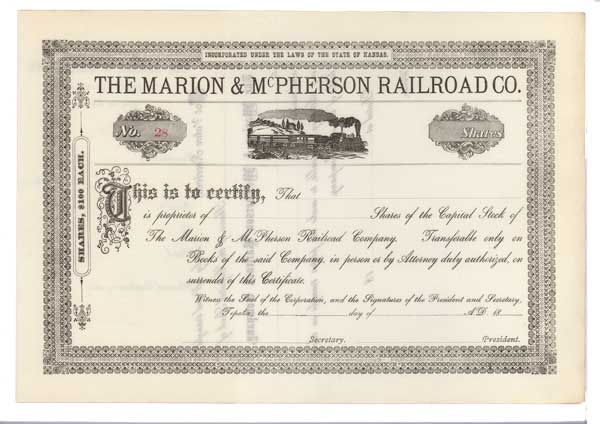 INCORPORATED UNDER THE LAWS OF THE STATE OF KANSAS.
THE MARION & McPHERSON RAILROAD CO.
No. 28
Shares
SHARES, $100 EACH.
This is to certify, That
is proprietor of Shares of the Capital Stock of
The Marion & McPherson Railroad Company. Transferable only on
Books of the said Company, in person or by Attorney duly authorized, on
surrender of this Certificate.
Witness the Seal of the Corporation, and the Signatures of the President and Secretary,
Topeka, the day of A.D. 18
Secretary. President.